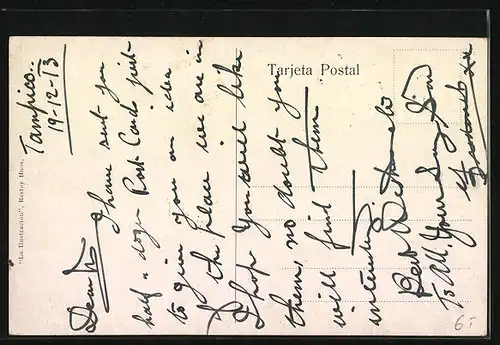 Tarjeta Postal
"La Ilustración", Restoy Hnos.
Tampico.
19-12-13
I have sent you
half a dozen Post Cards just
to give you an idea
of the place we are in
I hope you will like
them, no doubt you
will find them
interesting.
Best Wishes
To All. Your Loving Son
6.-